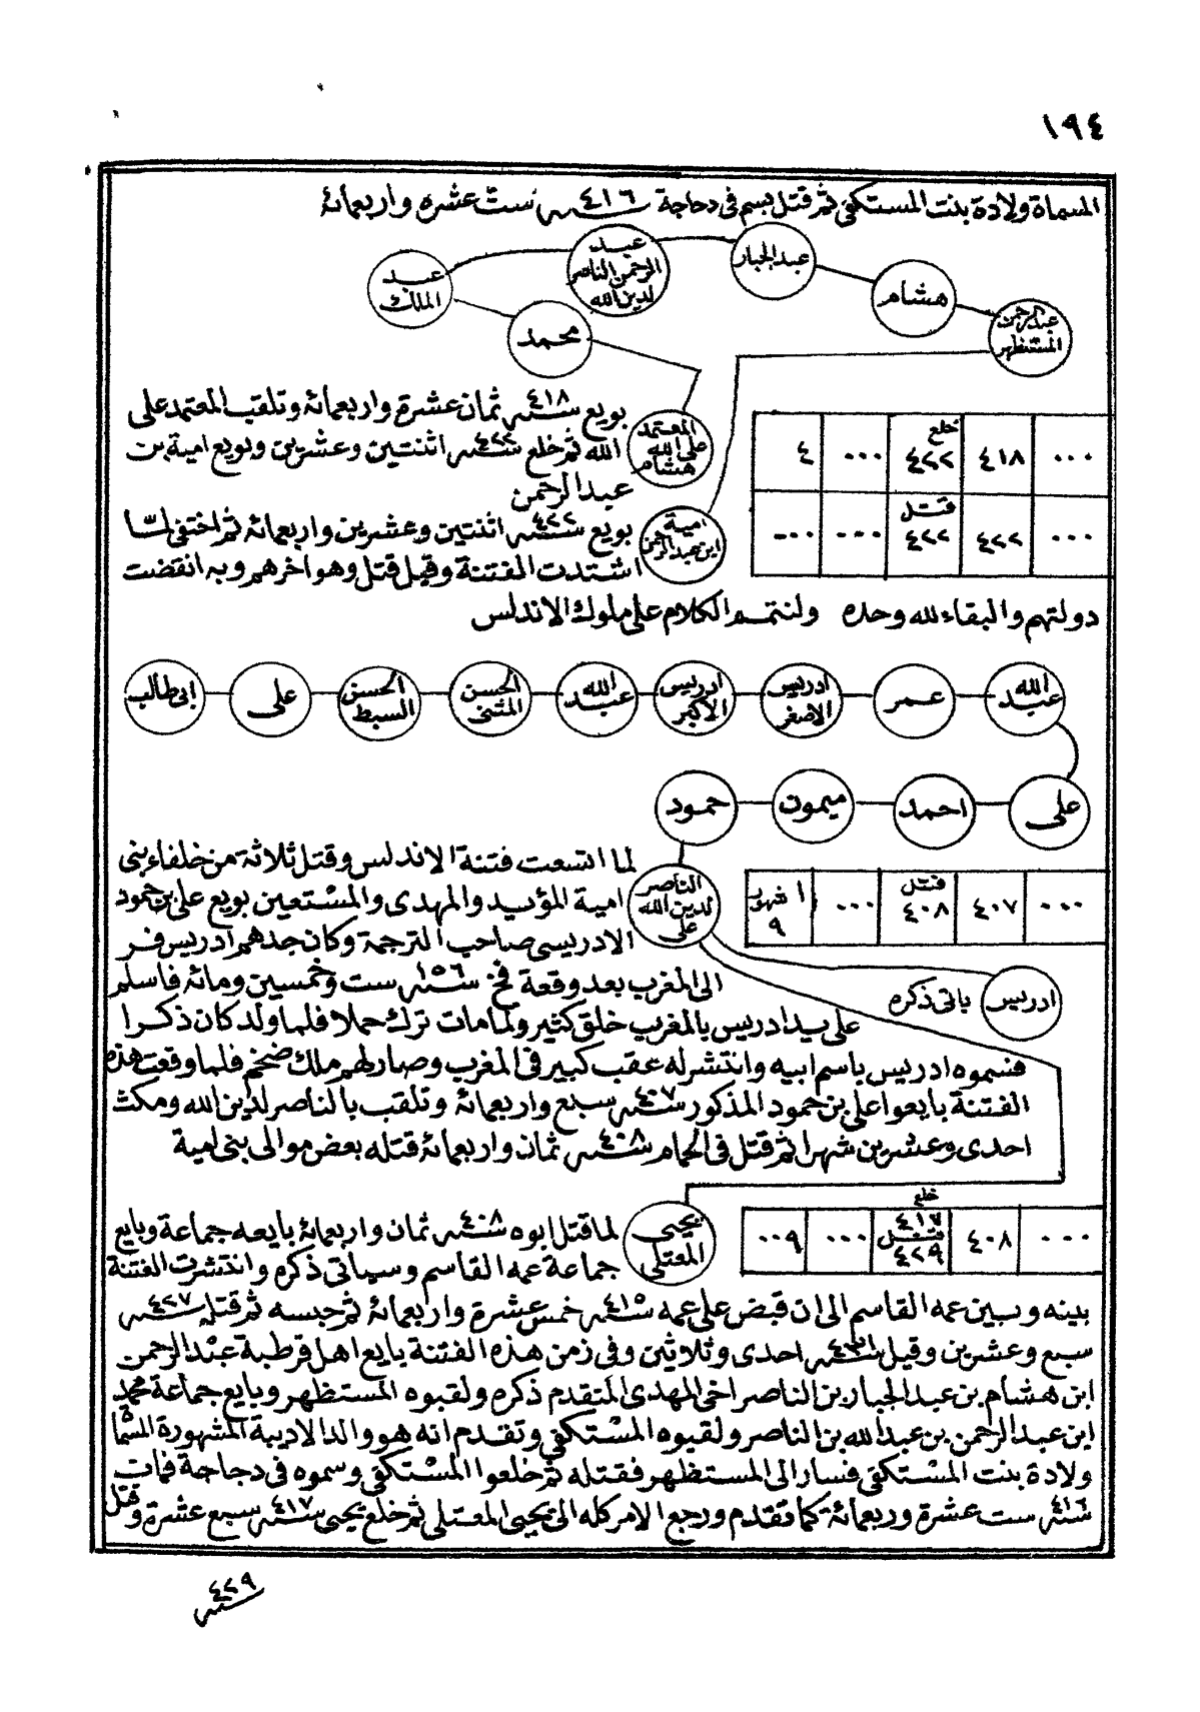 ١٩٤
المسماة ولادة بنت المستكفى ثم قتل بسم فى دجاجة سنة ٤١٦ ست عشره واربعمائة
عبد الملك
عبد الرحمن الناصر لدين الله
عبد الجبار
هشام
عبد الرحمن المستظهر
محمد
المعتمد على الله هشام
بويع سنة ٤١٨ ثمان عشرة واربعمائة وتلقب المعتمد على
الله ثم خلع سنة ٤٢٢ اثنتين وعشرين وبويع امية بن
عبد الرحمن
... ٤١٨ خلع ٤٢٢ ... ٤
امية ابن عبد الرحمن
بويع سنة ٤٢٢ اثنتين وعشرين واربعمائة ثم اختفى لمّا
اشتدت الفتنة وقيل قتل وهو اخرهم وبه انقضت
... ٤٢٢ قتل ٤٢٢ ... ...
دولتهم والبقاء لله وحده ولنتمم الكلام على ملوك الاندلس
عبيد الله
عمر
ادريس الاصغر
ادريس الاكبر
عبد الله
الحسن المثنى
الحسن السبط
على
ابى طالب
على
احمد
ميمون
حمود
الناصر لدين الله على
... ٤٠٧ قتل ٤٠٨ ... ١ شهور ٩
لما اتسعت فتنة الاندلس وقتل ثلاثة من خلفاء بنى
امية المؤيد والمهدى والمستعين بويع على بن حمود
الادريسى صاحب الترجمة وكان جدهم ادريس فر
الى المغرب بعد وقعة فخ سنة ١٥٦ ست وخمسين ومائة فاسلم
ادريس ياتى ذكره
على يد ادريس بالمغرب خلق كثير ولما مات ترك حملا فلما ولد كان ذكرا
فسموه ادريس باسم ابيه وانتشر له عقب كبير فى المغرب وصار لهم ملك ضخم فلما وقعت هذه
الفتنة بايعوا على بن حمود المذكور سنة ٤٠٧ سبع واربعمائة وتلقب بالناصر لدين الله ومكث
احدى وعشرين شهرا ثم قتل فى الحمام سنة ٤٠٨ ثمان واربعمائة قتله بعض موالى بنى امية
يحيى المعتلى
... ٤٠٨ خلع ٤١٧ قتل ٤٢٩ ... ٠٠٩
لما قتل ابوه سنة ٤٠٨ ثمان واربعمائة بايعه جماعة وبايع
جماعة عمه القاسم وسياتى ذكره وانتشرت الفتنة
بينه وبين عمه القاسم الى ان قبض على عمه سنة ٤١٥ خمس عشرة واربعمائة ثم حبسه ثم قتله سنة ٤٢٧
سبع وعشرين وقيل سنة ٤٣١ احدى وثلاثين وفى زمن هذه الفتنة بايع اهل قرطبة عبد الرحمن
ابن هشام بن عبد الجبار بن الناصر اخى المهدى المتقدم ذكره ولقبوه المستظهر وبايع جماعة محمد
ابن عبد الرحمن بن عبد الله بن الناصر ولقبوه المستكفى وتقدم انه هو والد الاديبة المشهورة المسماة
ولادة بنت المستكفى فسار الى المستظهر فقتله ثم خلعوا المستكفى وسموه فى دجاجة فمات
سنة ٤١٦ ست عشرة وربعمائة كما تقدم ورجع الامر كله الى يحيى المعتلى ثم خلع يحيى سنة ٤١٧ سبع عشرة وقتل
سنة ٤٢٩